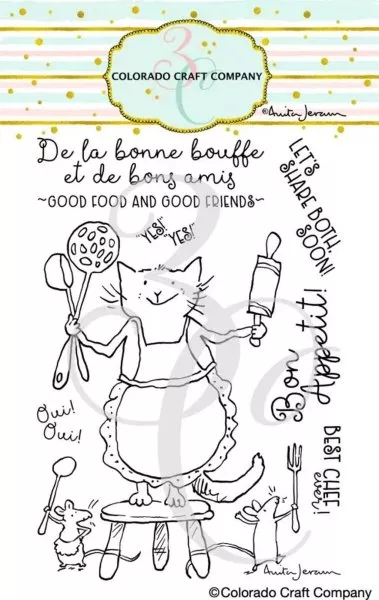 COLORADO CRAFT COMPANY
©Anita Jeram
De la bonne bouffe
et de bons amis
~GOOD FOOD AND GOOD FRIENDS~
LET'S
SHARE BOTH,
SOON!
"YES!"
"YES!"
Bon
Appétit!
Oui!
Oui!
BEST CHEF
ever!
Anita Jeram
©Colorado Craft Company
3C
3C